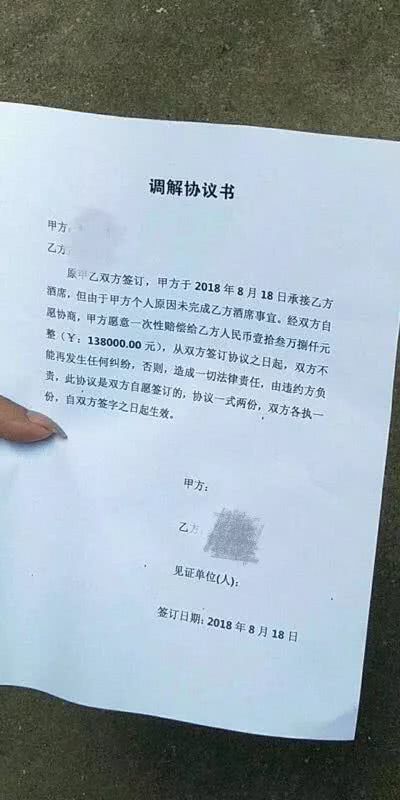 调解协议书
甲方:
乙方:
原甲乙双方签订，甲方于 2018 年 8 月 18 日承接乙方
酒席，但由于甲方个人原因未完成乙方酒席事宜。经双方自
愿协商，甲方愿意一次性赔偿给乙方人民币壹拾叁万捌仟元
整（￥：138000.00 元），从双方签订协议之日起，双方不
能再发生任何纠纷，否则，造成一切法律责任，由违约方负
责，此协议是双方自愿签订的，协议一式两份，双方各执一
份，自双方签字之日起生效。
甲方:
乙方
见证单位(人):
签订日期: 2018 年 8 月 18 日